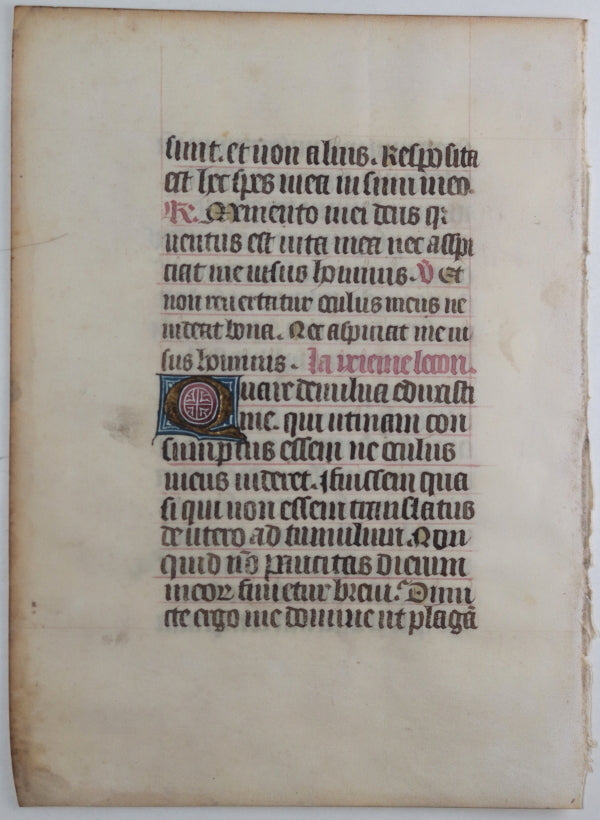 sunt. et non alius. Reposita
est hec spes mea in sinu meo.
R. Memento mei deus q̄
uentus est uita mea nec aspi
ciat me uisus hominis. V Et
non reuertatur oculus meus ut
uideat bona. Nec aspiciat me ui
sus hominis. la ixieme lecon.
Quare de uulua eduxisti
me. qui utinam con
sumptus essem ne oculus
meus uideret. ffuissem qua
si qui non essem translatus
de utero ad tumulum. Non
quid nō paucitas dierum
meor finietur breui. Dimi
cte ergo me domine ut plagā